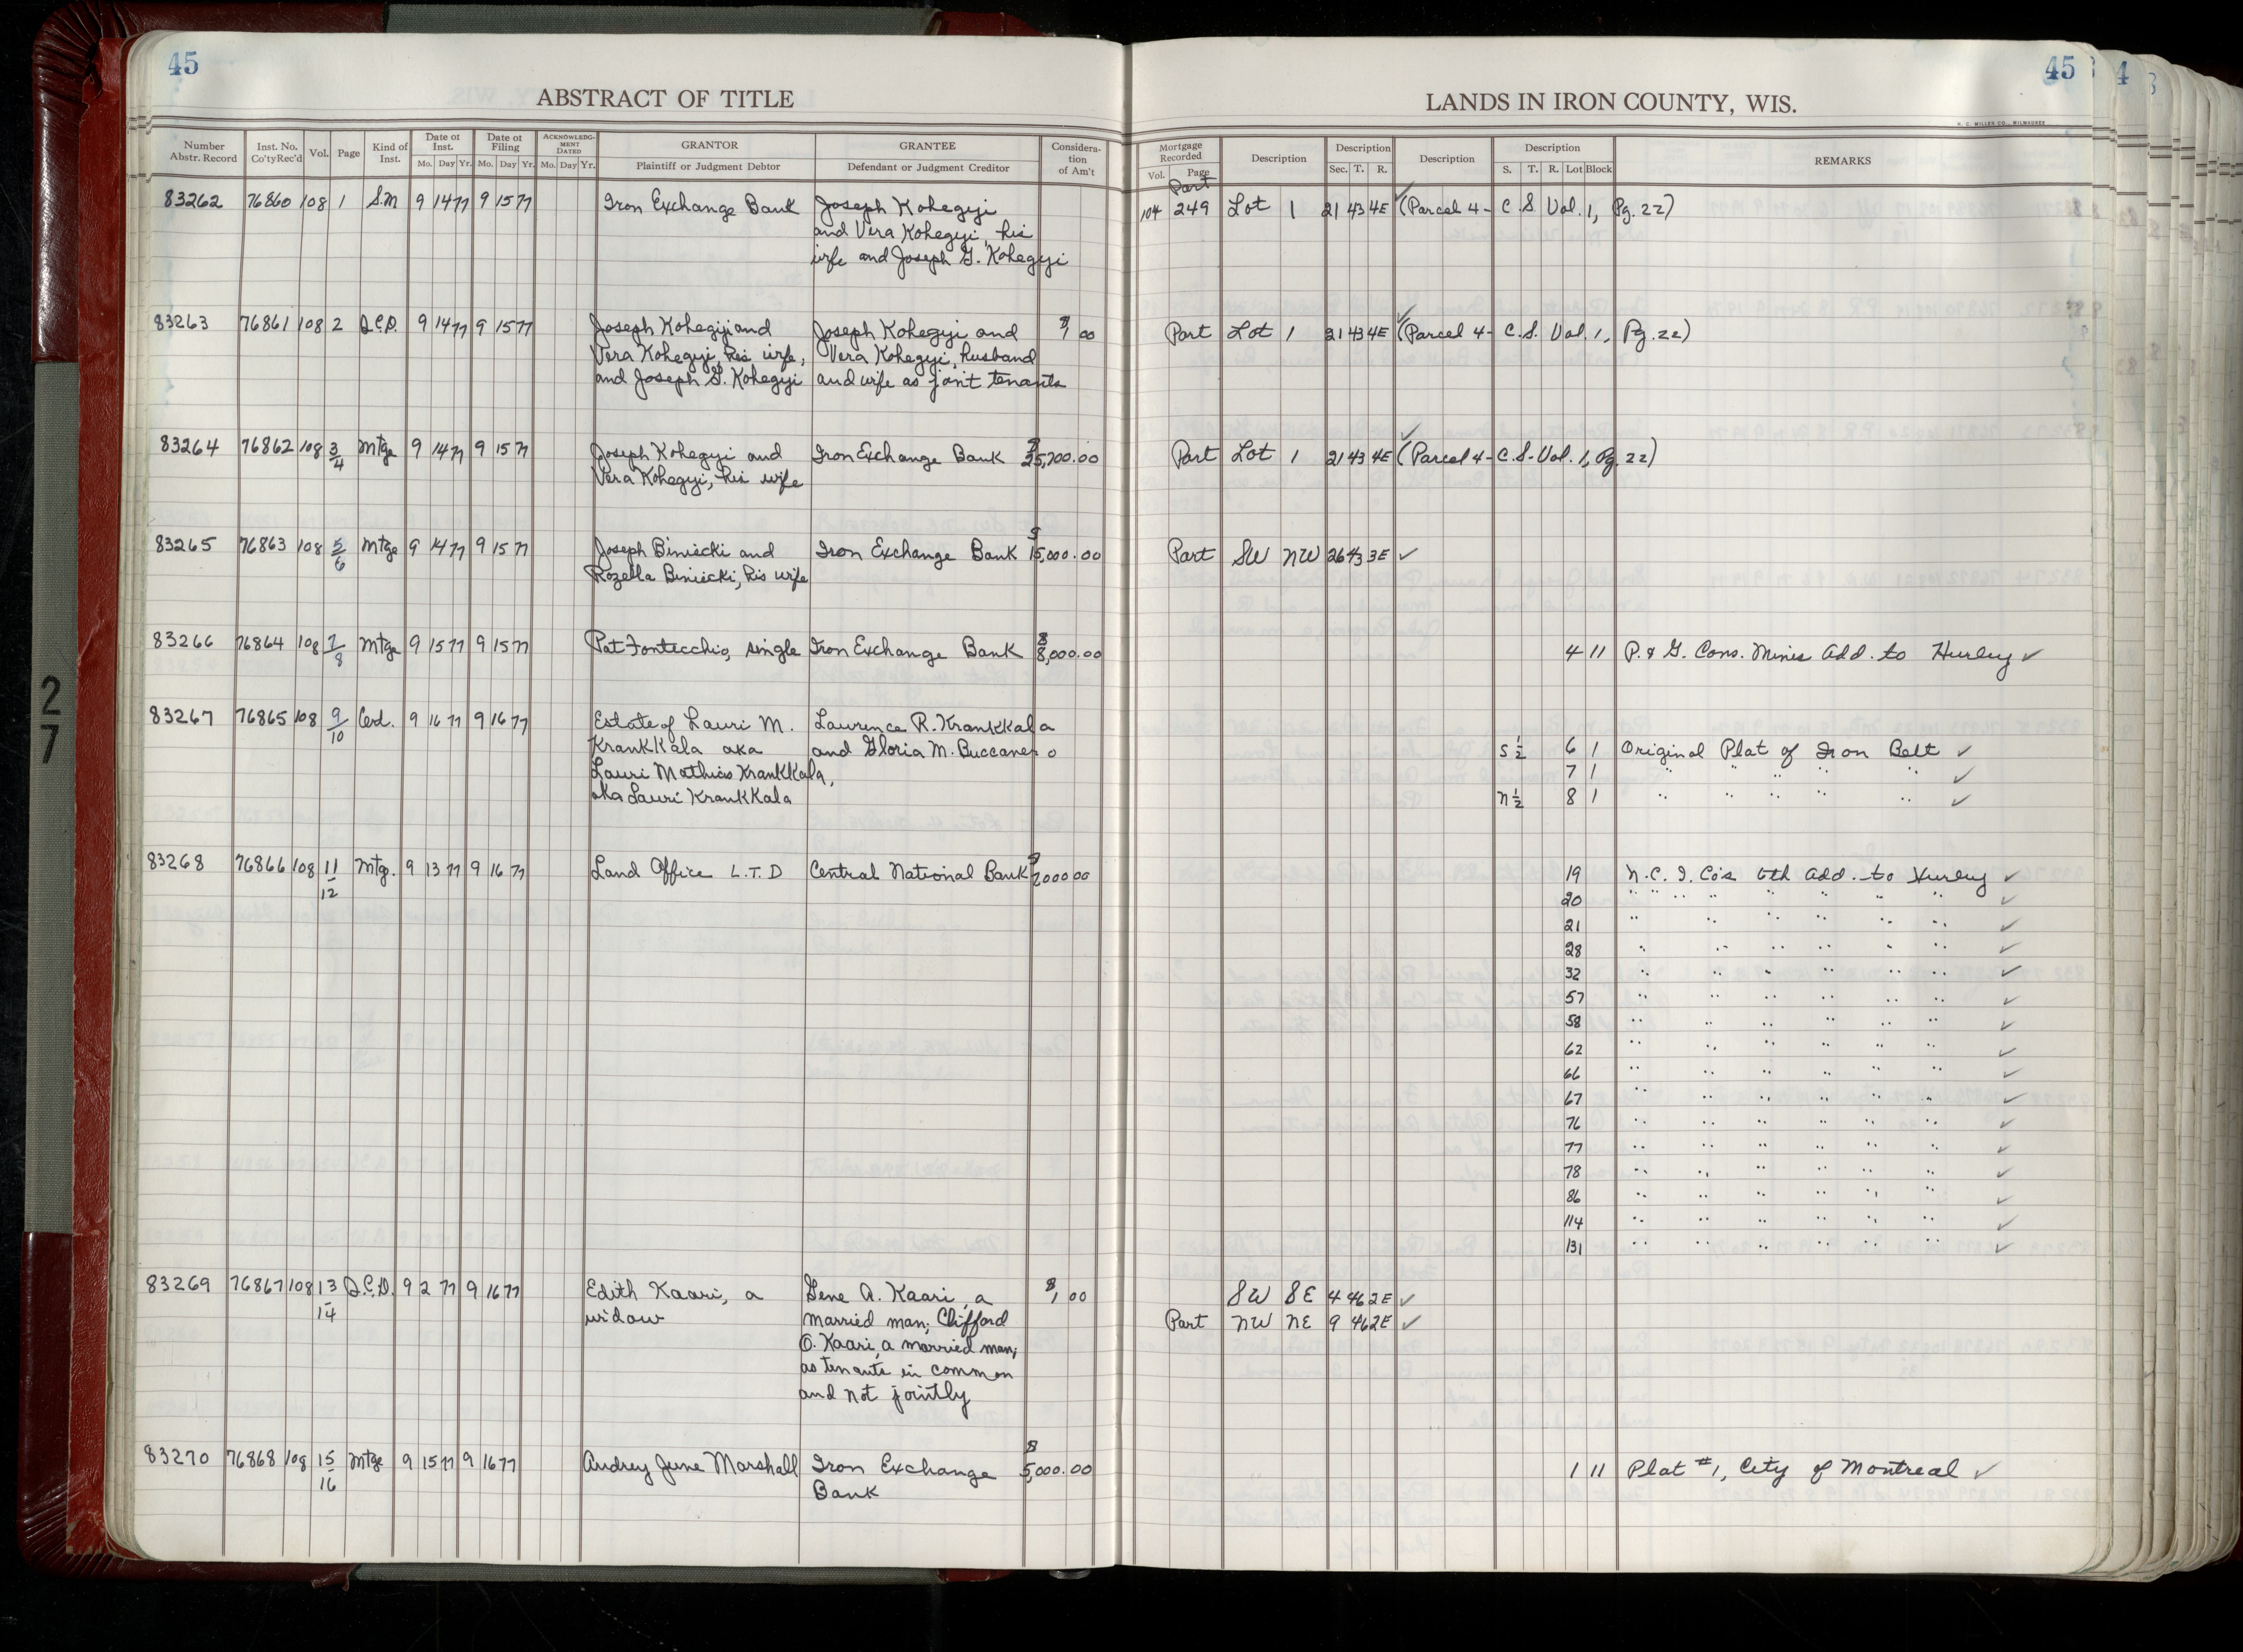 45
ABSTRACT OF TITLE
Number Abstr. Record | Inst. No. Co'ty Rec'd | Vol. | Page | Kind of Inst. | Date of Inst. Mo. Day Yr. | Date of Filing Mo. Day Yr. | ACKNOWLEDGMENT DATED Mo. Day Yr. | GRANTOR Plaintiff or Judgment Debtor | GRANTEE Defendant or Judgment Creditor | Consideration of Am't
83262 76860 108 1 S.M 9 14 77 9 15 77 Iron Exchange Bank Joseph Kohegyi
and Vera Kohegyi, his
wife and Joseph G. Kohegyi
83263 76861 108 2 Q.C.D. 9 14 77 9 15 77 Joseph Kohegyi and Joseph Kohegyi and $1 00
Vera Kohegyi, his wife, Vera Kohegyi, husband
and Joseph G. Kohegyi and wife as joint tenants
83264 76862 108 3/4 Mtge 9 14 77 9 15 77 Joseph Kohegyi and Iron Exchange Bank $25,700.00
Vera Kohegyi, his wife
83265 76863 108 5/6 Mtge 9 14 77 9 15 77 Joseph Biniecki and Iron Exchange Bank $15,000.00
Rozella Biniecki, his wife
83266 76864 108 7/8 Mtge 9 15 77 9 15 77 Pat Fontecchio, single Iron Exchange Bank $8,000.00
83267 76865 108 9/10 Cert. 9 16 77 9 16 77 Estate of Lauri M. Laurence R. Krankkala
Krankkala aka and Gloria M. Buccanero
Lauri Mathies Krankkala,
aka Lauri Krankkala
83268 76866 108 11/12 Mtg. 9 13 77 9 16 77 Land Office L.T.D Central National Bank $2000 00
83269 76867 108 13/14 Q.C.D. 9 2 77 9 16 77 Edith Kaari, a Gene A. Kaari, a $1 00
widow married man; Clifford
O. Kaari, a married man;
as tenants in common
and not jointly
83270 76868 108 15/16 Mtge 9 15 77 9 16 77 Audrey June Marshall Iron Exchange $5,000.00
Bank
27
45
4
LANDS IN IRON COUNTY, WIS.
H. C. MILLER CO., MILWAUKEE
Mortgage Recorded Vol. Page | Description | Description Sec. T. R. | Description | Description S. T. R. Lot Block | REMARKS
Part
104 249 Lot 1 21 43 4E ✓ (Parcel 4 - C.S Vol. 1, Pg. 22)
Part Lot 1 21 43 4E ✓ (Parcel 4 - C.S. Vol. 1, Pg. 22)
Part Lot 1 21 43 4E ✓ (Parcel 4 - C.S. Vol. 1, Pg. 22)
Part SW NW 26 43 3E ✓
4 11 P. & G. Cons. Mines Add. to Hurley ✓
S ½ 6 1 Original Plat of Iron Belt ✓
7 1 " " " " " ✓
N ½ 8 1 " " " " " ✓
19 N.C. I. Co's 6th Add. to Hurley ✓
20 " " " " " " " ✓
21 " " " " " " ✓
28 " " " " " " ✓
32 " " " " " " ✓
57 " " " " " " ✓
58 " " " " " " ✓
62 " " " " " " ✓
66 " " " " " " ✓
67 " " " " " " ✓
76 " " " " " " ✓
77 " " " " " " ✓
78 " " " " " " ✓
86 " " " " " " ✓
114 " " " " " " ✓
131 " " " " " " ✓
SW SE 4 46 2E ✓
Part NW NE 9 46 2E ✓
1 11 Plat #1, City of Montreal ✓